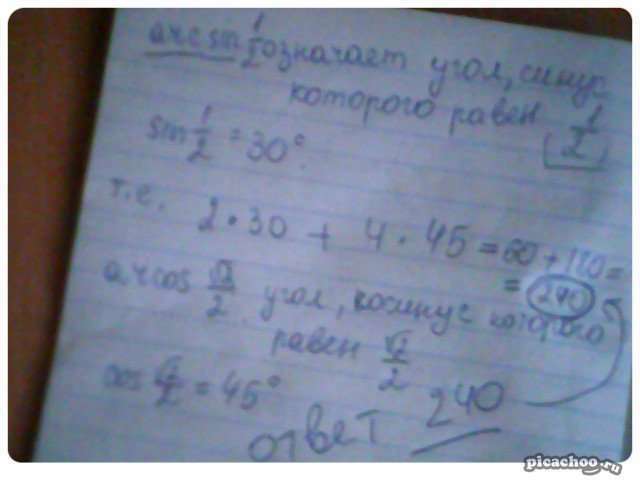 arcsin 1/2 означает угол, синус
которого равен 1/2
sin 1/2 = 30°.
т.е. 2·30 + 4·45 = 60 + 180 =
= 240
arcos √2/2 угол, косинус которого
равен √2/2
cos √2/2 = 45°
ответ 240
picachoo.ru